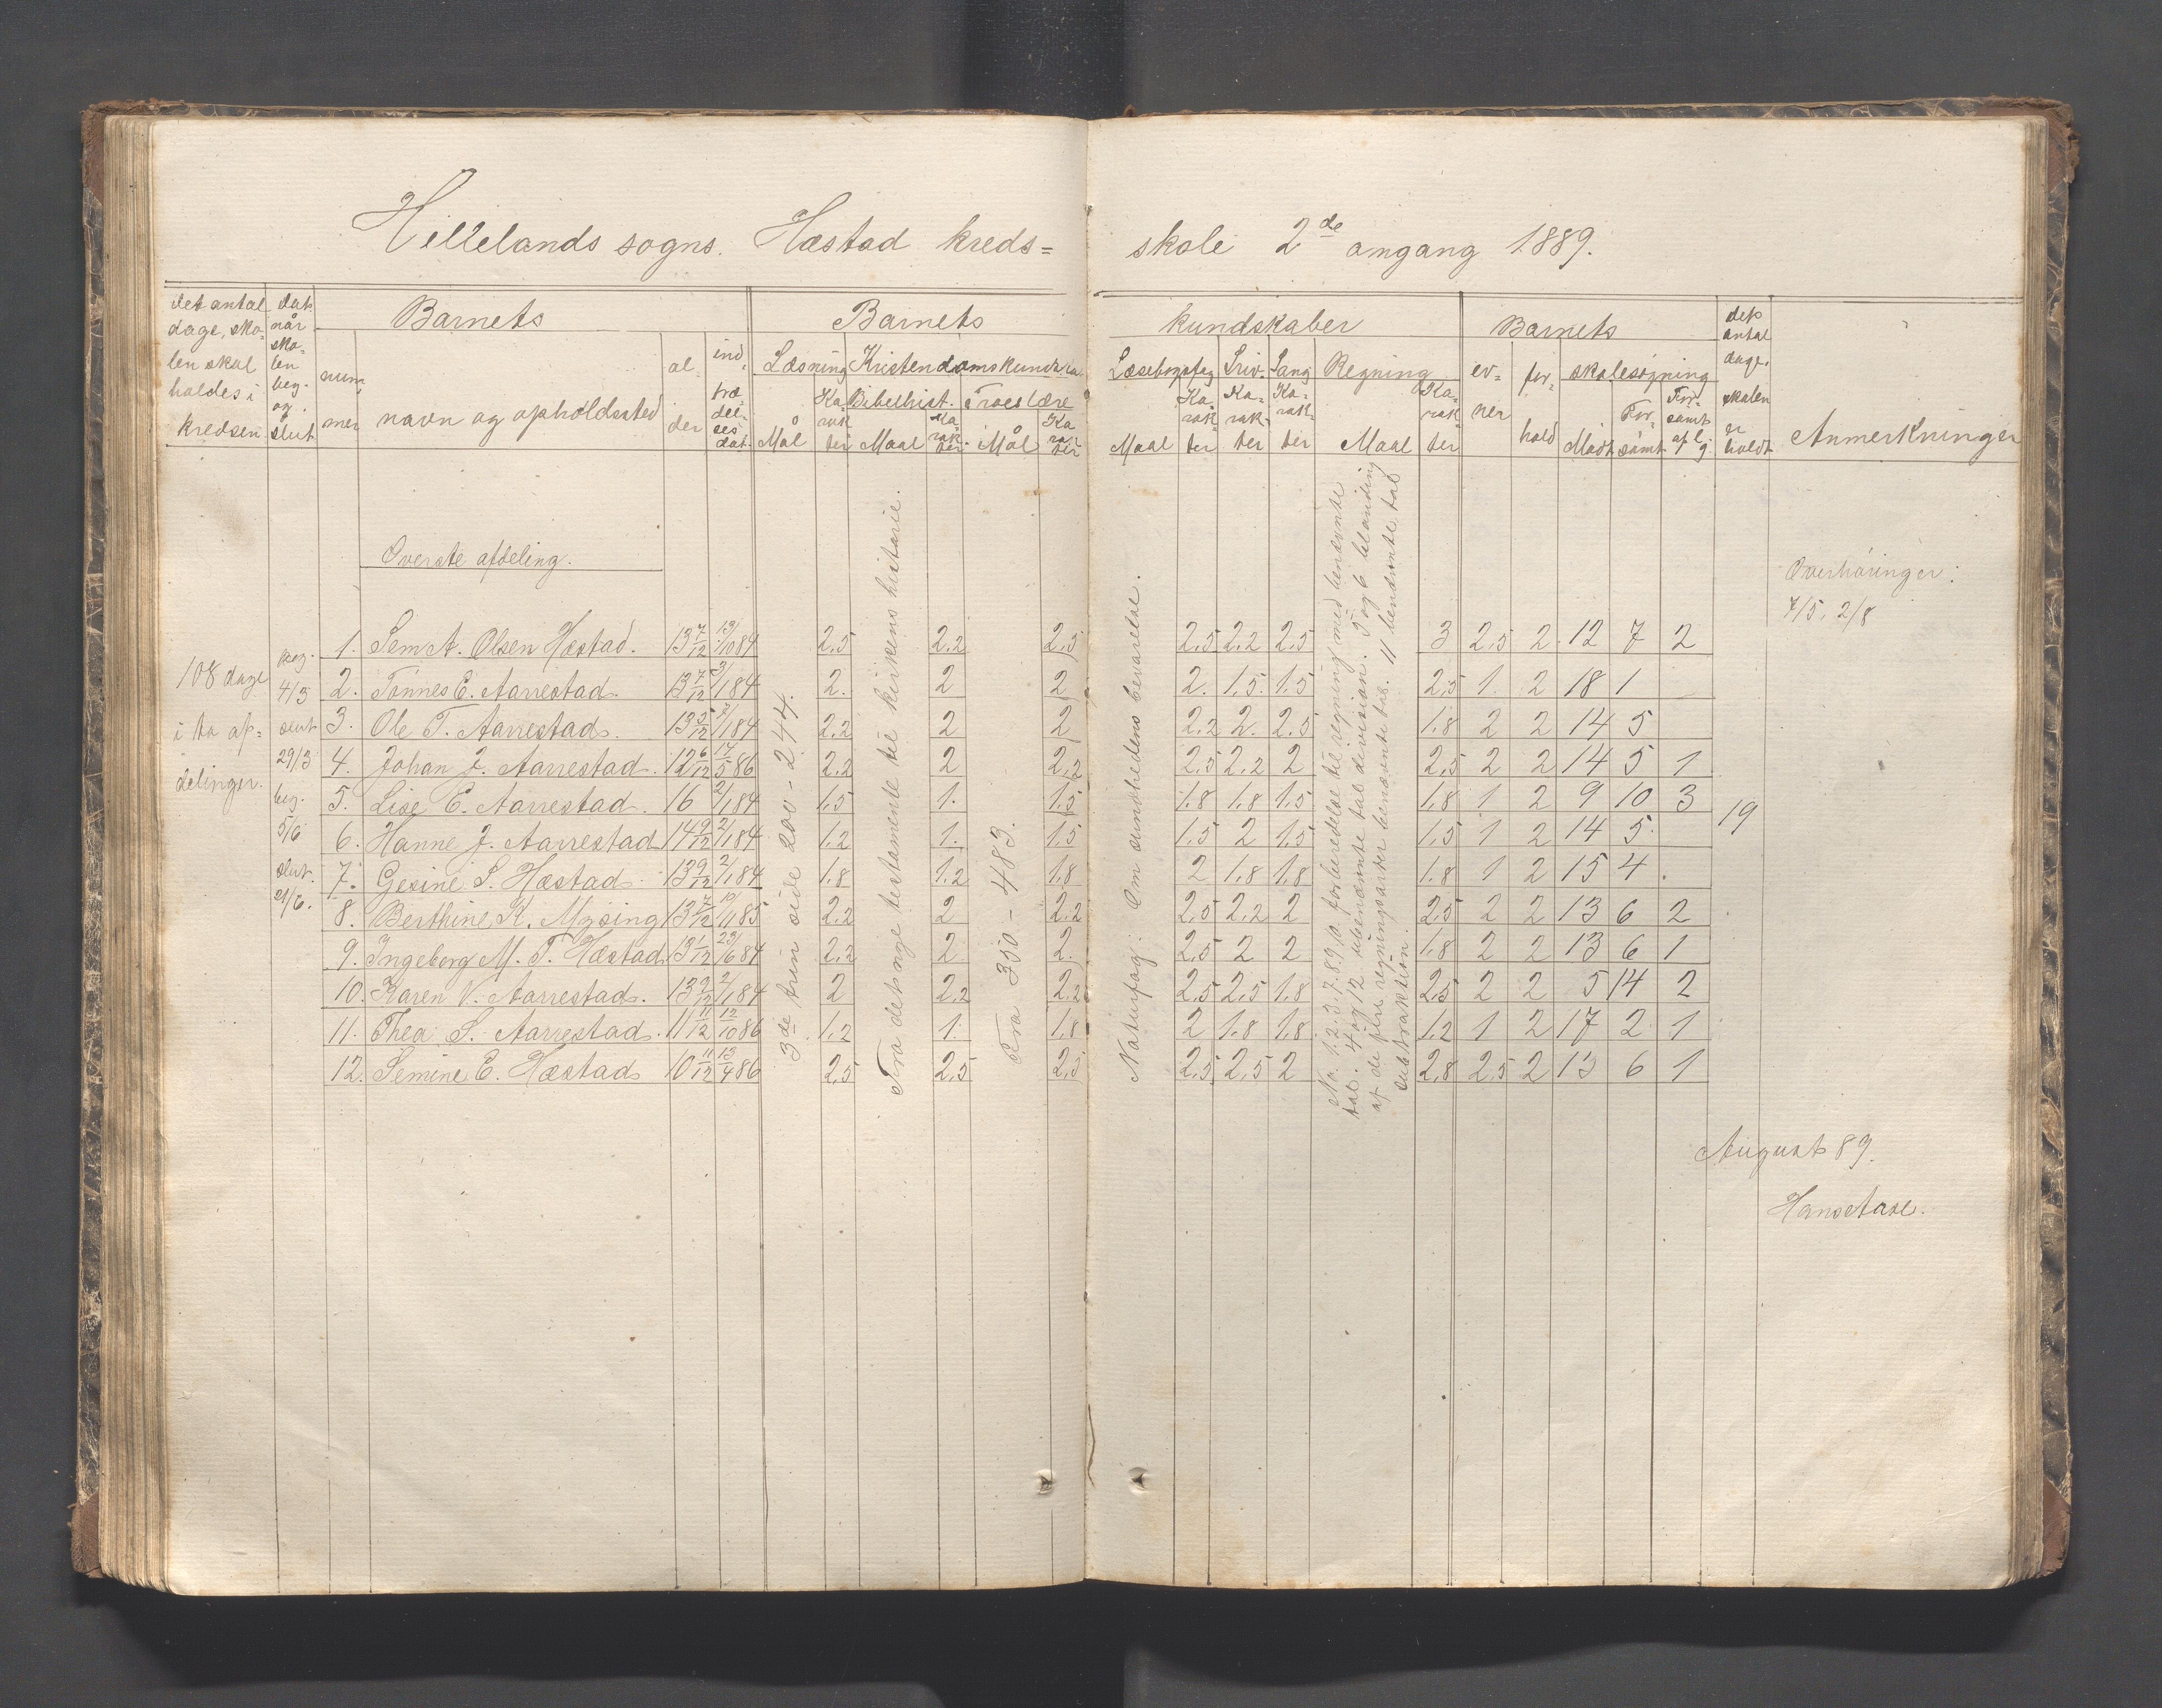 Hillelands sogns. Hæstad kreds=
skole 2de omgang 1889.
det antal dage, skolen skal holdes i kredsen
dat. når skolen beg. og slut
Barnets
nummer
navn og opholdssted
alder
indtrædelses dat.
Barnets
Læsning
Mål
Karakter
Kristendomskundska
Bibelhist.
Maal
Karakter
Troeslære
Mål
Karakter
kundskaber
Læsebogsfag
Maal
Karakter
Skriv.
Karakter
Sang
Karakter
Regning
Maal
Karakter
Barnets
evner
forhold
skolesøgning
Mødt
Forsømt
Forsømt af l. g.
det antal dage, skolen er holdt
Anmerkninger
Øverste afdeling.
108 dage
i to af=
delinger.
beg.
4/3
slut
29/3
beg.
5/6
slut.
21/6.
3de trin side 200 - 244.
Fra det nye testamente til kirkens historie.
Fra 350 - 483.
Naturfag: Om sundhedens bevarelse.
No. 1.2.3.7.8.9.10. forberedelse til regning med benævnte
tal. 4 og 12 ubenævnte tal division. 5 og 6 blanding
af de fire regningsarter benævnte tal. 11 benævnte tal
subtraktion.
1. Sem A. Olsen Hæstad. 13 7/12 13/10 84 2,5 2,2 2,5 2,5 2,2 2,5 3 2,5 2 12 7 2
2. Tönnes E. Aarrestad. 13 7/12 3/1 84 2. 2 2 2. 1,5 1,5 2,5 1. 2 18 1
3. Ole T. Aarrestad. 13 5/12 2/1 84 2,2 2 2 2,2 2. 2,5 1,8 2 2 14 5
4. Johan J. Aarrestad. 12 6/12 14/5 86 2,2 2 2,2 2,5 2,2 2 2,5 2 2 14 5 1
5. Lise E. Aarrestad. 16 2/1 84 1,5 1. 1,5 1,8 1,8 1,5 1,8 1 2 9 10 3
6. Hanne J. Aarrestad 14 9/12 2/1 84 1,2 1. 1,5 1,5 2 1,5 1,5 1 2 14 5
7. Gesine S. Hæstad. 13 9/12 2/1 84 1,8 1,2 1,8 2 1,8 1,8 1,8 1 2 15 4
8. Berthine K. Mysing 13 7/12 19/1 85 2,2 2 2,2 2,5 2,2 2 2,5 2 2 13 6 2
9. Ingeborg M. T. Hæstad 13 1/12 23/6 84 2,2 2 2. 2,5 2 2 1,8 2 2 13 6 1
10. Karen V. Aarrestad. 13 9/12 2/1 84 2 2,2 2,2 2,5 2,5 1,8 2,5 2 2 5 14 2
11. Thea S. Aarrestad. 11 11/12 12/10 86 1,2 1. 1,8 2 1,8 1,8 1,2 1 2 17 2 1
12. Semine E. Hæstad 10 11/12 13/4 86 2,5 2,5 2,5 2,5 2,5 2 2,8 2,5 2 13 6 1
19
Overhöringer:
7/5, 2/8
August 89.
Hans Aase.